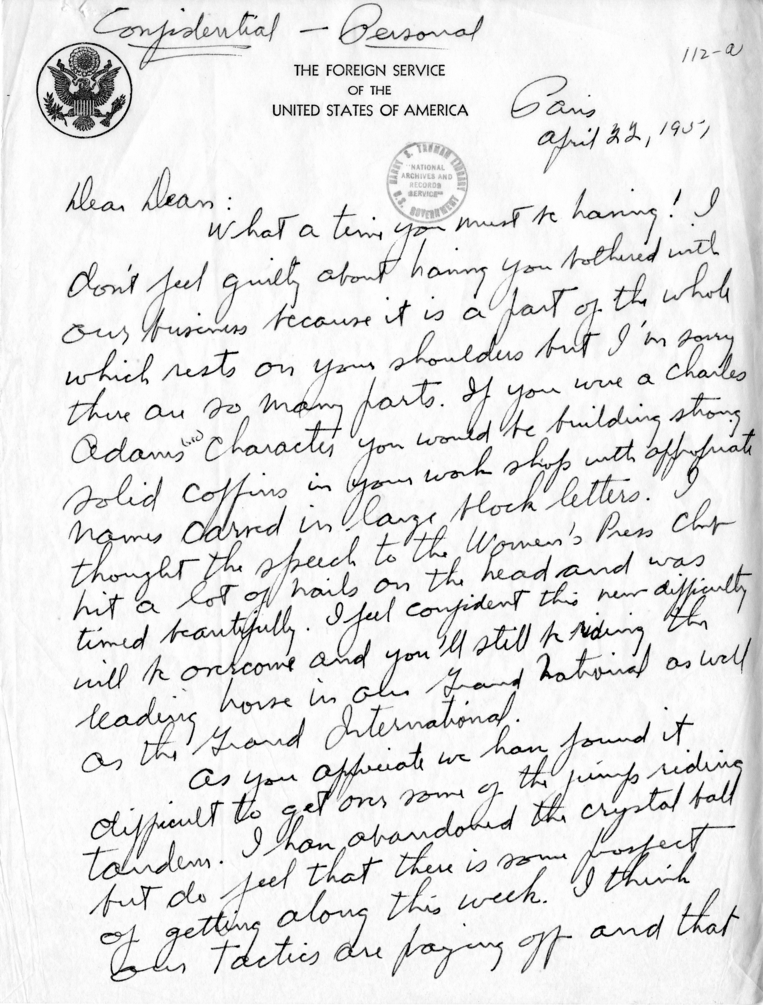 Confidential - Personal
112-a
THE FOREIGN SERVICE
OF THE
UNITED STATES OF AMERICA
Paris
April 22, 1951
HARRY S. TRUMAN LIBRARY
NATIONAL
ARCHIVES AND
RECORDS
SERVICE
U.S. GOVERNMENT
Dear Dean:
What a time you must be having! I
don't feel guilty about having you bothered with
our business because it is a part of the whole
which rests on your shoulders but I'm sorry
there are so many parts. If you were a Charles
Adams character you would be building strong
solid coffins in your work shop with appropriate
names carved in large block letters. I
thought the speech to the Women's Press Club
hit a lot of nails on the head and was
timed beautifully. I feel confident this new difficulty
will be overcome and you'll still be riding the
leading horse in our Grand National as well
as the Grand International.
As you appreciate we have found it
difficult to get over some of the jumps riding
tandem. I have abandoned the crystal ball
but do feel that there is some prospect
of getting along this week. I think
our tactics are paying off and that